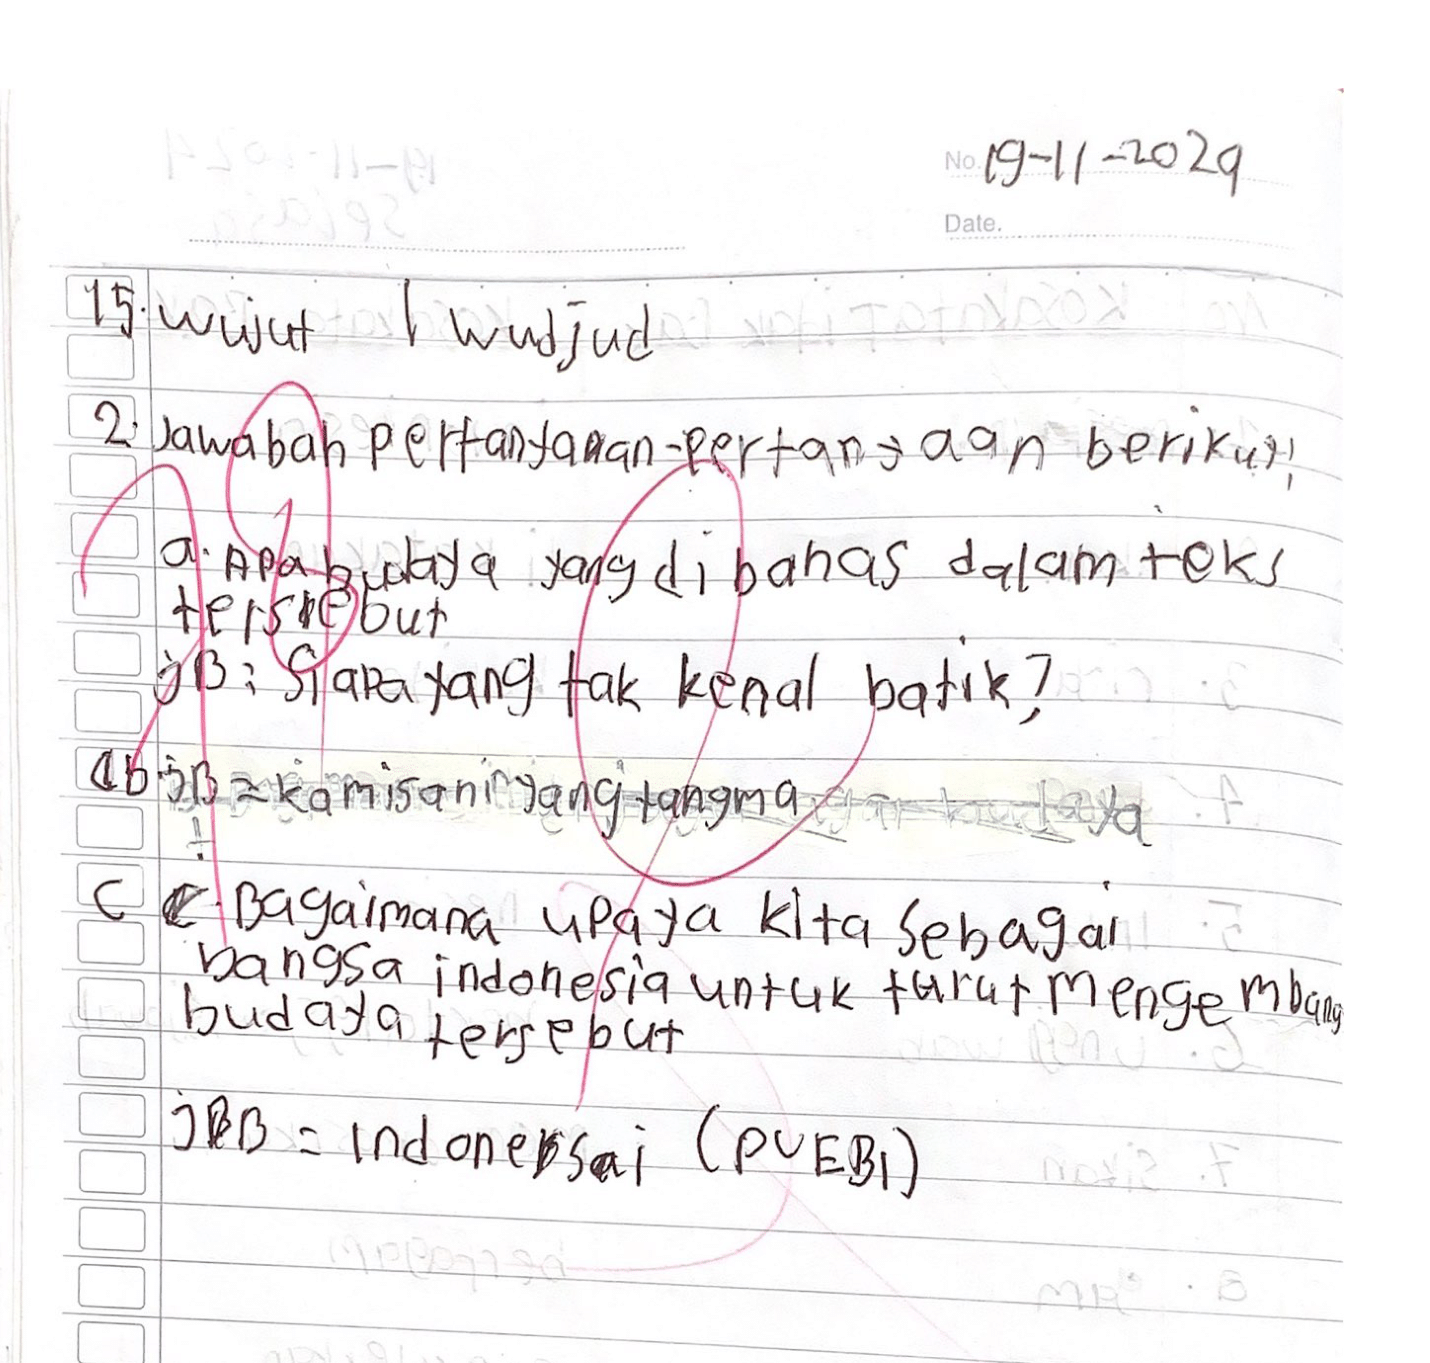 No. 19-11-2024
Date.
15. wujut | wudjud
2. Jawabah pertanyaaan-pertanyaan berikut!
a. Apa budaya yang di bahas dalam teks
tersebut
jB: Siapa yang tak kenal batik?
b jB = kamisani yang tangma ya
C c. Bagaimana upaya kita sebagai
bangsa indonesia untuk turut mengembang
budaya tersebut
jBB = Indonesai (PUEBI)